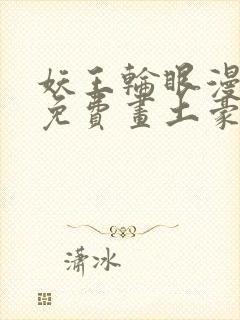 妖王輪眼漫
免費畫土豪
瀟冰